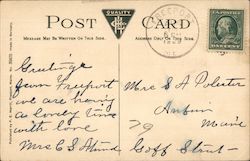 POST CARD
QUALITY
MESSAGE MAY BE WRITTEN ON THIS SIDE.
ADDRESS ONLY ON THIS SIDE.
FREEPORT
ME.
Greetings
from Freeport
we are having
a lovely time
with love
Mrs C S
Mrs S A
Auburn
Maine
79 Goff Street